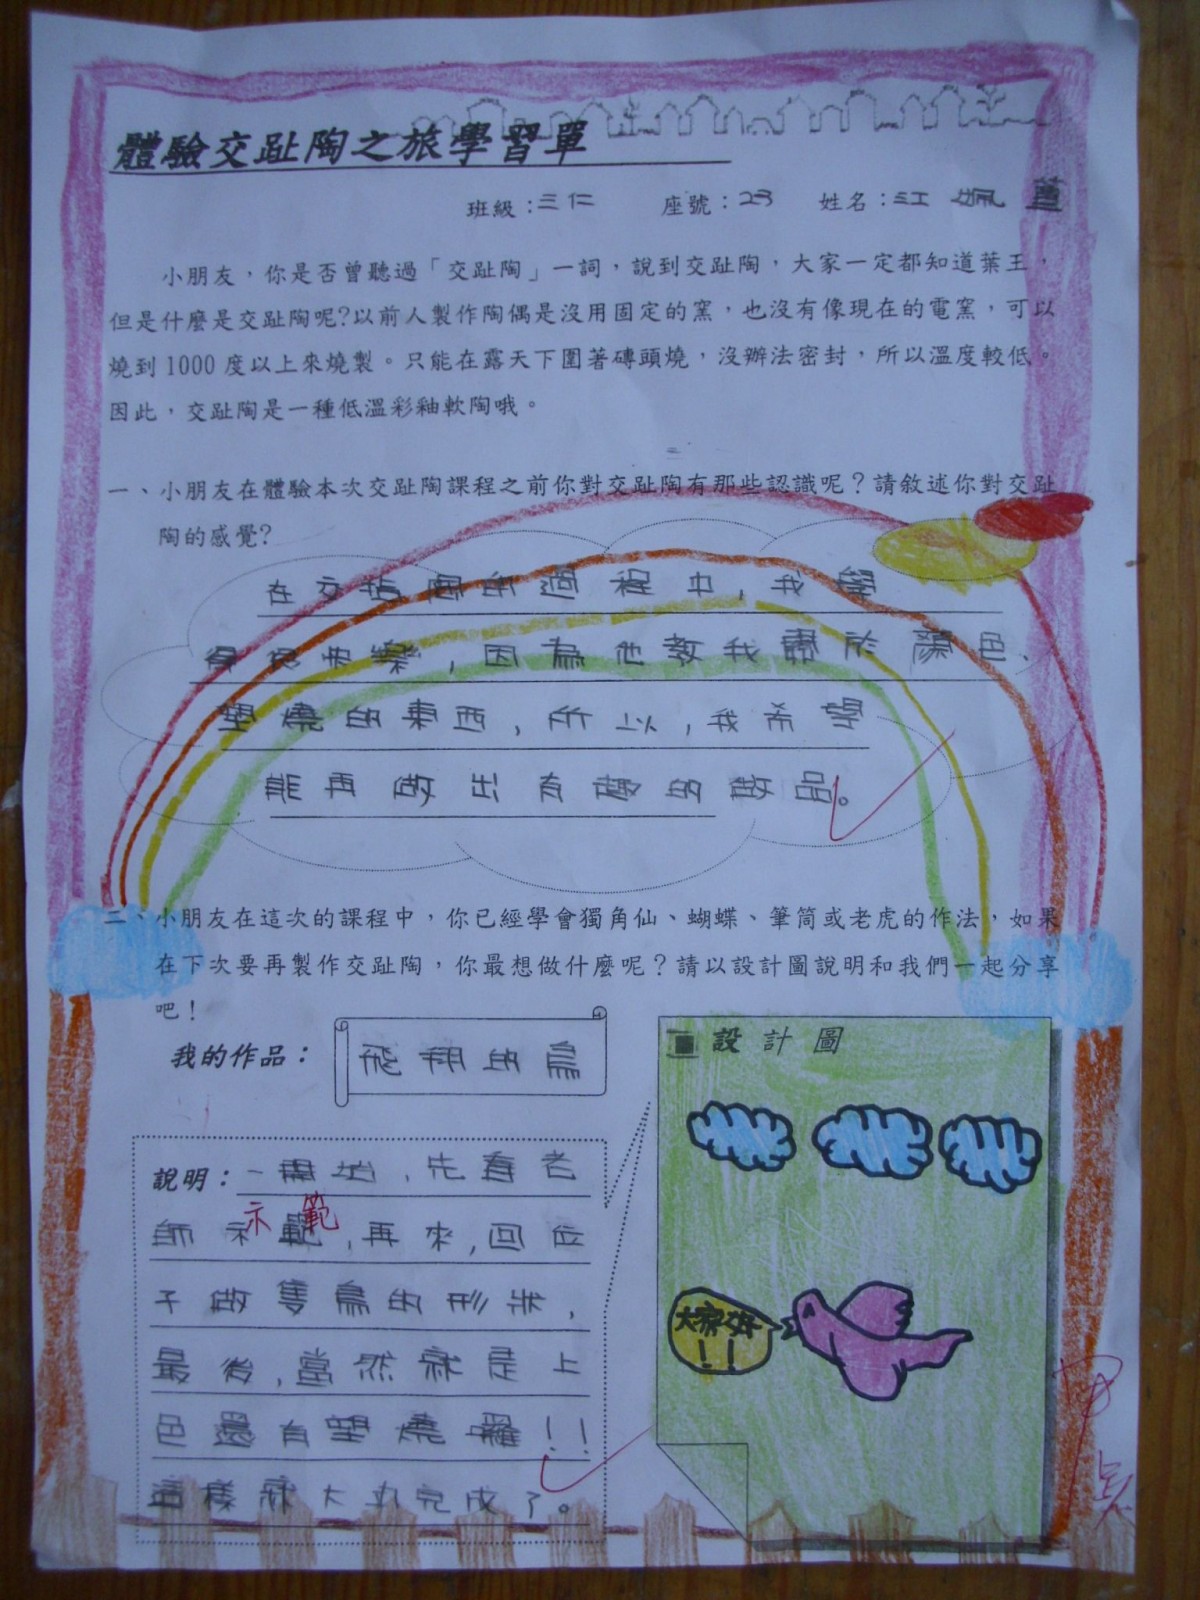 體驗交趾陶之旅學習單
班級：三仁 座號：23 姓名：江珮萱
小朋友，你是否曾聽過「交趾陶」一詞，說到交趾陶，大家一定都知道葉王，
但是什麼是交趾陶呢?以前人製作陶偶是沒用固定的窯，也沒有像現在的電窯，可以
燒到1000度以上來燒製。只能在露天下圍著磚頭燒，沒辦法密封，所以溫度較低。
因此，交趾陶是一種低溫彩釉軟陶哦。
一、小朋友在體驗本次交趾陶課程之前你對交趾陶有那些認識呢？請敘述你對交趾
陶的感覺?
在交趾陶的過程中，我學
得很快樂，因為他教我關於顏色、
塑燒的東西，所以，我希望
能再做出有趣的做品。
二、小朋友在這次的課程中，你已經學會獨角仙、蝴蝶、筆筒或老虎的作法，如果
在下次要再製作交趾陶，你最想做什麼呢？請以設計圖說明和我們一起分享
吧！
我的作品：飛翔的鳥
設計圖
說明：一開始，先看老
示範
師示範，再來，回位
子做隻鳥的形狀，
最後，當然就是上
色還有塑燒囉！！
這樣就大功完成了。
大家好
！！